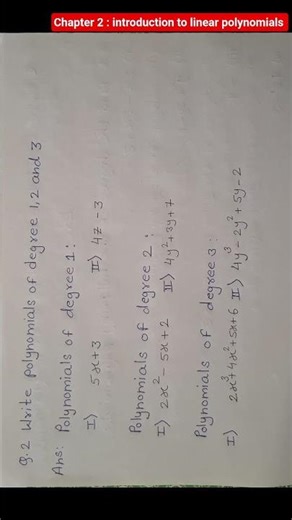 Chapter 2 : introduction to linear polynomials
Q.2 Write polynomials of degree 1, 2 and 3
Ans: Polynomials of degree 1:
I) 5x+3 II) 4z-3
Polynomials of degree 2:
I) 2x² - 5x + 2 II) 4y² + 3y + 7
Polynomials of degree 3:
I) 2x³ + 4x² + 5x + 6 II) 4y³ - 2y² + 5y - 2